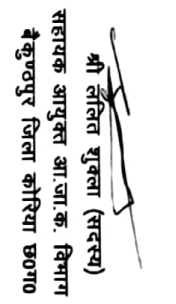 श्री ललित शुक्ला (सदस्य)
सहायक आयुक्त आ.जा.क. विभाग
बैकुण्ठपुर जिला कोरिया छ0ग0